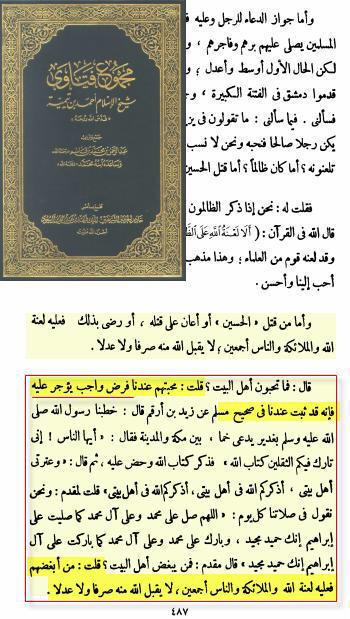 وأما جواز الدعاء للرجل وعليه
المسلمين يصلى عليهم برهم وفاجرهم ،
لكن الحال الأول أوسط وأعدل ؛
قدموا دمشق فى الفتنة الكبيرة ،
فسألنى . فيما سألنى : ما تقولون فى
يكن رجلا صالحا فنحبه ونحن لا نسب
تلعنونه ؟ أما كان ظالماً ؟ أما قتل الحسين
مجموع فتاوى
شيخ الإسلام أحمد بن تيمية
فقلت له : نحن إذا ذكر الظالمون
قال الله فى القرآن : (أَلَا لَعْنَةُ اللَّهِ عَلَى
وقد لعنه قوم من العلماء ؛ وهذا مذهب
أحب إلينا وأحسن .
وأما من قتل « الحسين » أو أعان على قتله ، أو رضى بذلك فعليه لعنة
الله والملائكة والناس أجمعين ؛ لا يقبل الله منه صرفا ولا عدلا .
قال : فما تحبون أهل البيت ؟ قلت : محبتهم عندنا فرض واجب يؤجر عليه
فإنه قد ثبت عندنا فى صحيح مسلم عن زيد بن أرقم قال : خطبنا رسول الله صلى
الله عليه وسلم بغدير يدعى خما ، بين مكة والمدينة فقال : « أيها الناس ! إنى
تارك فيكم الثقلين كتاب الله » فذكر كتاب الله وحض عليه ، ثم قال : « وعترتى
أهل بيتى ، أذكركم الله فى أهل بيتى ، أذكركم الله فى أهل بيتى » قلت لمقدم : ونحن
نقول فى صلاتنا كل يوم : « اللهم صل على محمد وعلى آل محمد كما صليت على
إبراهيم إنك حميد مجيد ، وبارك على محمد وعلى آل محمد كما باركت على آل
إبراهيم إنك حميد مجيد » قال مقدم : فمن يبغض أهل البيت ؟ قلت : من أبغضهم
فعليه لعنة الله والملائكة والناس أجمعين ، لا يقبل الله منه صرفا ولا عدلا .
٤٨٧